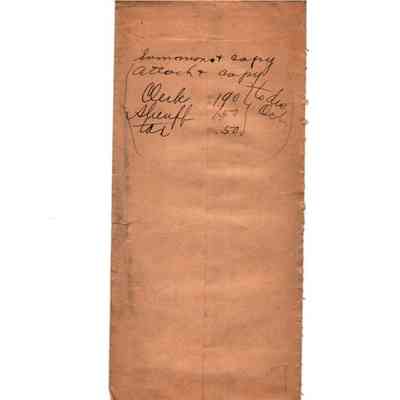 Summons & copy
attach & copy
Clerk 1.90
Sheriff 1.50
tax .50